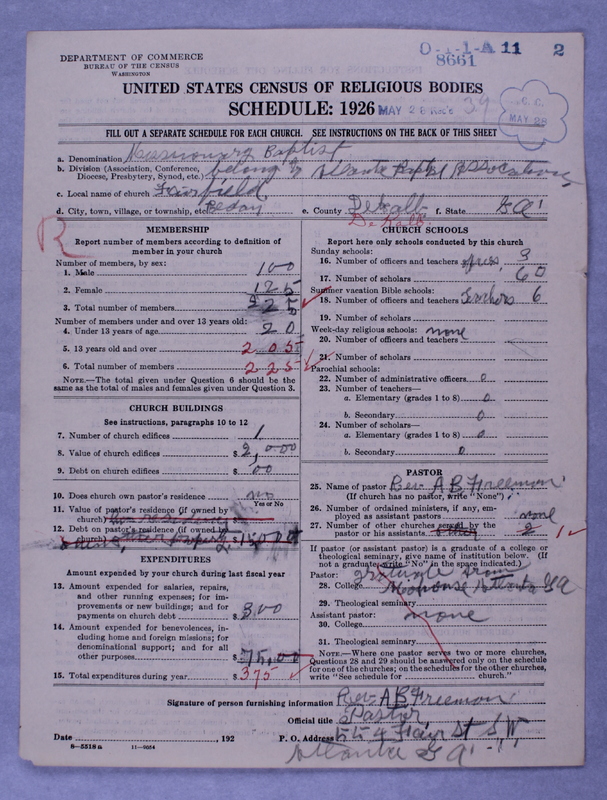 DEPARTMENT OF COMMERCE
BUREAU OF THE CENSUS
WASHINGTON
O-1-A 11 2
8661
UNITED STATES CENSUS OF RELIGIOUS BODIES
SCHEDULE: 1926
MAY 28
C.C.
MAY 28
FILL OUT A SEPARATE SCHEDULE FOR EACH CHURCH. SEE INSTRUCTIONS ON THE BACK OF THIS SHEET
a. Denomination Missionary Baptist
b. Division (Association, Conference, Diocese, Presbytery, Synod, etc.) belong to Atlanta Baptist Association
c. Local name of church Fairfield
d. City, town, village, or township, etc. e. County DeKalb f. State GA
DeKalb
R
MEMBERSHIP
Report number of members according to definition of member in your church
Number of members, by sex:
1. Male 100
2. Female 125
3. Total number of members 225
Number of members under and over 13 years old:
4. Under 13 years of age 20
5. 13 years old and over 205
6. Total number of members 225
NOTE.—The total given under Question 6 should be the same as the total of males and females given under Question 3.
CHURCH BUILDINGS
See instructions, paragraphs 10 to 12
7. Number of church edifices 1
8. Value of church edifices $2,000
9. Debt on church edifices $00
10. Does church own pastor's residence no
Yes or No
11. Value of pastor's residence (if owned by church) $
12. Debt on pastor's residence (if owned by church) $
EXPENDITURES
Amount expended by your church during last fiscal year
13. Amount expended for salaries, repairs, and other running expenses; for improvements or new buildings; and for payments on church debt $300
14. Amount expended for benevolences, including home and foreign missions; for denominational support; and for all other purposes $75,00
15. Total expenditures during year $375
CHURCH SCHOOLS
Report here only schools conducted by this church
Sunday schools:
16. Number of officers and teachers 3
17. Number of scholars 60
Summer vacation Bible schools:
18. Number of officers and teachers Teachers 6
19. Number of scholars
Week-day religious schools: none
20. Number of officers and teachers
21. Number of scholars
Parochial schools:
22. Number of administrative officers 0
23. Number of teachers—
a. Elementary (grades 1 to 8) 0
b. Secondary 0
24. Number of scholars—
a. Elementary (grades 1 to 8) 0
b. Secondary 0
PASTOR
25. Name of pastor Rev A B Freemon
(If church has no pastor, write "None")
26. Number of ordained ministers, if any, employed as assistant pastors none
27. Number of other churches served by the pastor or his assistants 2 1
If pastor (or assistant pastor) is a graduate of a college or theological seminary, give name of institution below. (If not a graduate write "No" in the space indicated.)
Pastor: graduate from
28. College Atlanta GA
29. Theological seminary
Assistant pastor: none
30. College
31. Theological seminary
NOTE.—Where one pastor serves two or more churches, Questions 28 and 29 should be answered only on the schedule for one of the churches; on the schedule for the other churches, write "See schedule for church."
Signature of person furnishing information Rev A B Freemon
Official title Pastor
Date , 192 P. O. Address 554 Fair St S.W.
8—5518 a 11—9054
Atlanta GA